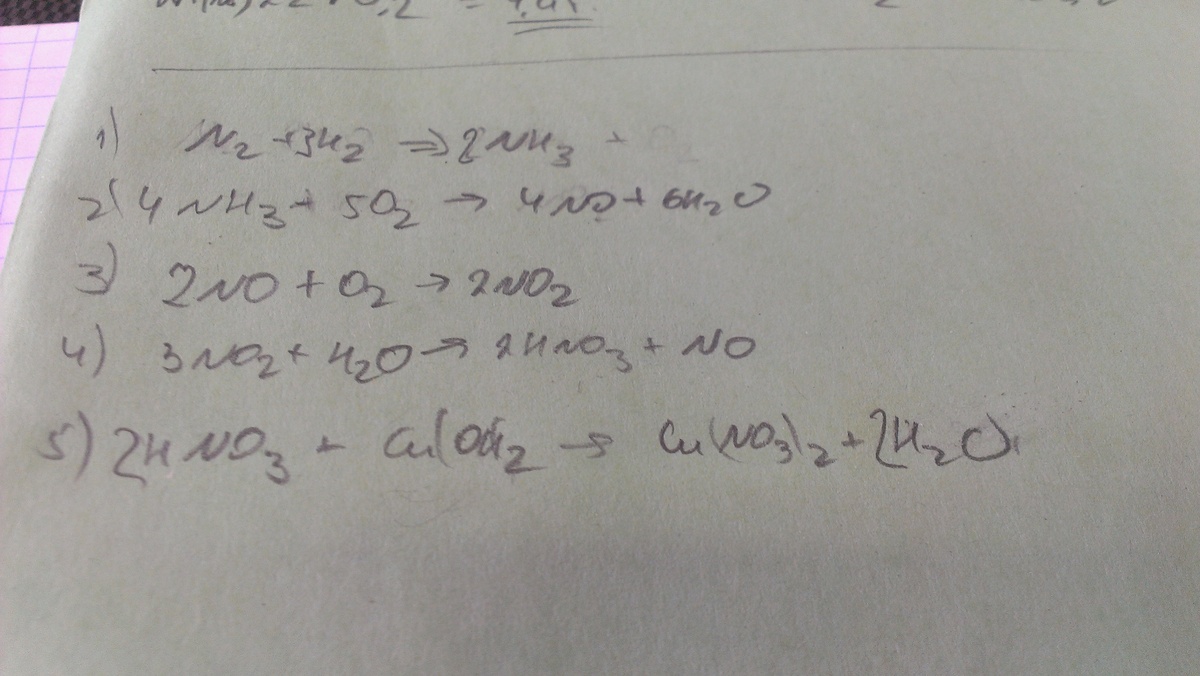 1) N2 + 3H2 => 2NH3 +
2) 4NH3 + 5O2 → 4NO + 6H2O
3) 2NO + O2 → 2NO2
4) 3NO2 + H2O → 2HNO3 + NO
5) 2HNO3 + Cu(OH)2 → Cu(NO3)2 + 2H2O